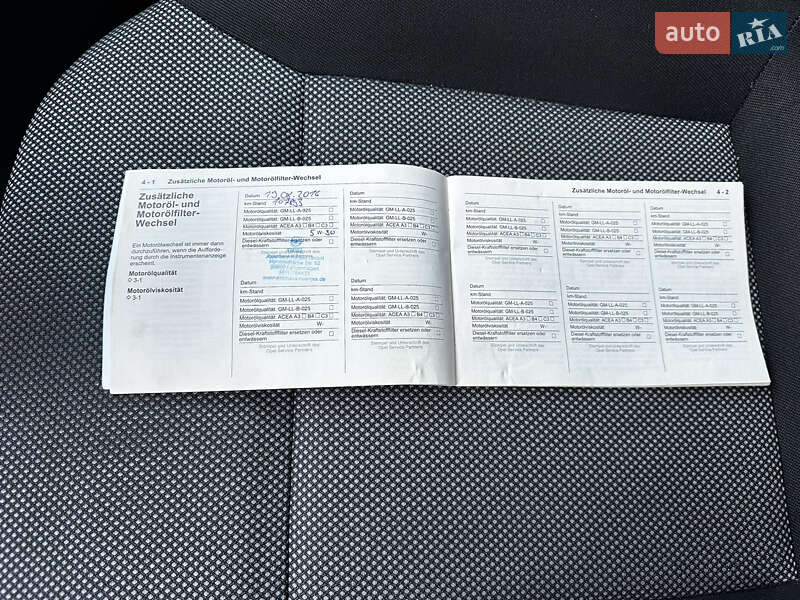 auto RIA .com
4 - 1 Zusätzliche Motoröl- und Motorölfilter-Wechsel
Zusätzliche
Motoröl- und
Motorölfilter-
Wechsel
Ein Motorölwechsel ist immer dann
durchzuführen, wenn die Aufforde-
rung durch die Instrumentenanzeige
erscheint.
Motorölqualität
3-1
Motorölviskosität
3-1
Datum
km-Stand
Motorölqualität: GM-LL-A-025
Motorölqualität: GM-LL-B-025
Motorölqualität: ACEA A3 B4 C3
Motorölviskosität 5 W-30
Diesel-Kraftstofffilter ersetzen oder
entwässern
Datum
km-Stand
Motorölqualität: GM-LL-A-025
Motorölqualität: GM-LL-B-025
Motorölqualität: ACEA A3 B4 C3
Motorölviskosität W-
Diesel-Kraftstofffilter ersetzen oder
entwässern
Stempel und Unterschrift des
Opel Service Partners
Datum
km-Stand
Motorölqualität: GM-LL-A-025
Motorölqualität: GM-LL-B-025
Motorölqualität: ACEA A3 B4 C3
Motorölviskosität W-
Diesel-Kraftstofffilter ersetzen oder
entwässern
Stempel und Unterschrift des
Opel Service Partners
Datum
km-Stand
Motorölqualität: GM-LL-A-025
Motorölqualität: GM-LL-B-025
Motorölqualität: ACEA A3 B4 C3
Motorölviskosität W-
Diesel-Kraftstofffilter ersetzen oder
entwässern
Stempel und Unterschrift des
Opel Service Partners
Zusätzliche Motoröl- und Motorölfilter-Wechsel 4 - 2
Datum
km-Stand
Motorölqualität: GM-LL-A-025
Motorölqualität: GM-LL-B-025
Motorölqualität: ACEA A3 B4 C3
Motorölviskosität W-
Diesel-Kraftstofffilter ersetzen oder
entwässern
Stempel und Unterschrift des
Opel Service Partners
Datum
km-Stand
Motorölqualität: GM-LL-A-025
Motorölqualität: GM-LL-B-025
Motorölqualität: ACEA A3 B4 C3
Motorölviskosität W-
Diesel-Kraftstofffilter ersetzen oder
entwässern
Stempel und Unterschrift des
Opel Service Partners
Datum
km-Stand
Motorölqualität: GM-LL-A-025
Motorölqualität: GM-LL-B-025
Motorölqualität: ACEA A3 B4 C3
Motorölviskosität W-
Diesel-Kraftstofffilter ersetzen oder
entwässern
Stempel und Unterschrift des
Opel Service Partners
Datum
km-Stand
Motorölqualität: GM-LL-A-025
Motorölqualität: GM-LL-B-025
Motorölqualität: ACEA A3 B4 C3
Motorölviskosität W-
Diesel-Kraftstofffilter ersetzen oder
entwässern
Stempel und Unterschrift des
Opel Service Partners
Datum
km-Stand
Motorölqualität: GM-LL-A-025
Motorölqualität: GM-LL-B-025
Motorölqualität: ACEA A3 B4 C3
Motorölviskosität W-
Diesel-Kraftstofffilter ersetzen oder
entwässern
Stempel und Unterschrift des
Opel Service Partners
Datum
km-Stand
Motorölqualität: GM-LL-A-025
Motorölqualität: GM-LL-B-025
Motorölqualität: ACEA A3 B4 C3
Motorölviskosität W-
Diesel-Kraftstofffilter ersetzen oder
entwässern
Stempel und Unterschrift des
Opel Service Partners